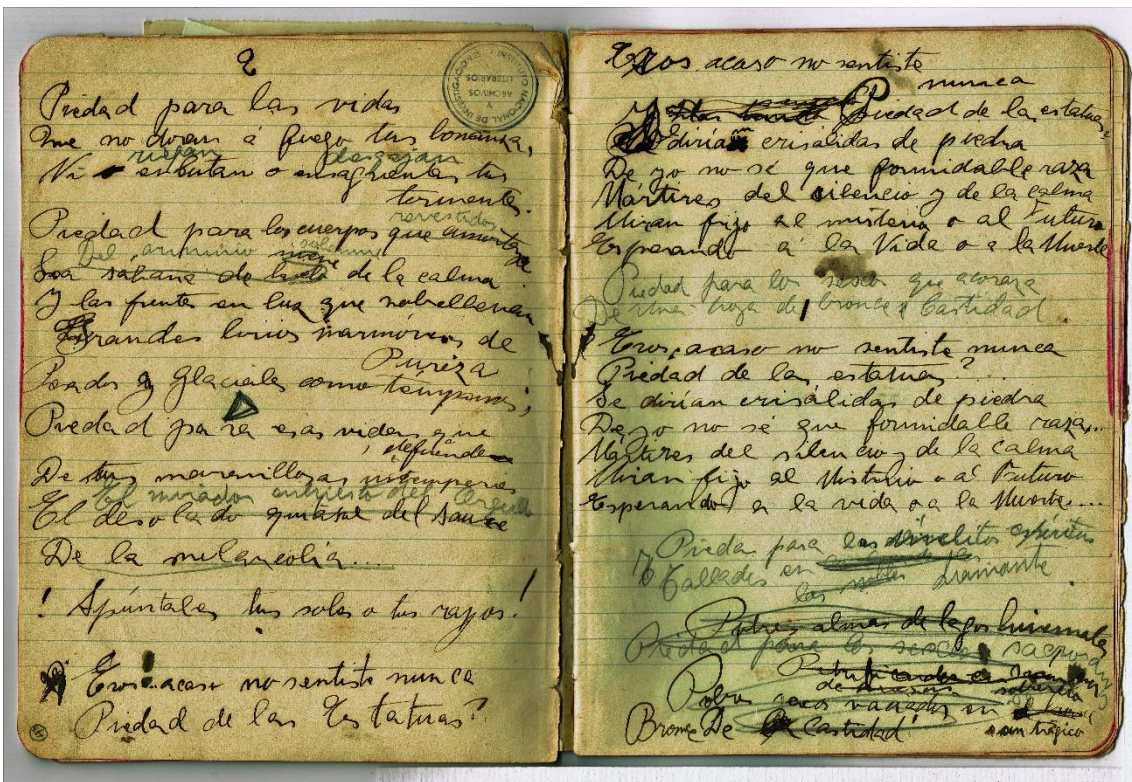 2
Piedad para las vidas
Que no doran á fuego tus bonanzas,
riegan desgajan
Ni o ensagrientan tus
tormentas.
revestidos
Piedad para los cuerpos que
Del armiño solemne
Sea sábana de de la calma
Y las frente en luz que sobrellevan
Grandes lirios marmóreos de
Pureza
Pesados y Glaciales como témpanos;
Piedad para esas vidas que
defiende
De tus maravillosas intemperies
El mirador enhiesto del Orgullo
El desolado quitasol del sauce
De la melancolía....
! Apúntales tus soles o tus rayos!
Eros acaso no sentiste nunca
Piedad de las Estatuas?
Eros acaso no sentiste
nunca
Piedad de la estatuas?
Se dirían crisálidas de piedra
De yo no sé que formidable raza
Mártires del silencio y de la calma
Miran fijo al misterio o al Futuro
Esperando á la Vida o a la Muerte
Piedad para los sexos que acoraza
De una hoja de bronce, Castidad
Eros, acaso no sentiste nunca
Piedad de las estatuas?...
Se dirían crisálidas de piedra
De yo no sé que formidable raza...
Mártires del silencio y de la calma
Miran fijo al Misterio o al Futuro
Esperando a la vida o a la Muerte....
Pieda para los espíritus
Tallados en diamante
Pobres almas de lagos hivernales
Piedad para los sexos sacros
Pobres sexos vaciados en
Bronce De Castidad
INSTITUTO NACIONAL DE INVESTIGACIONES
ARCHIVOS
LITERARIOS